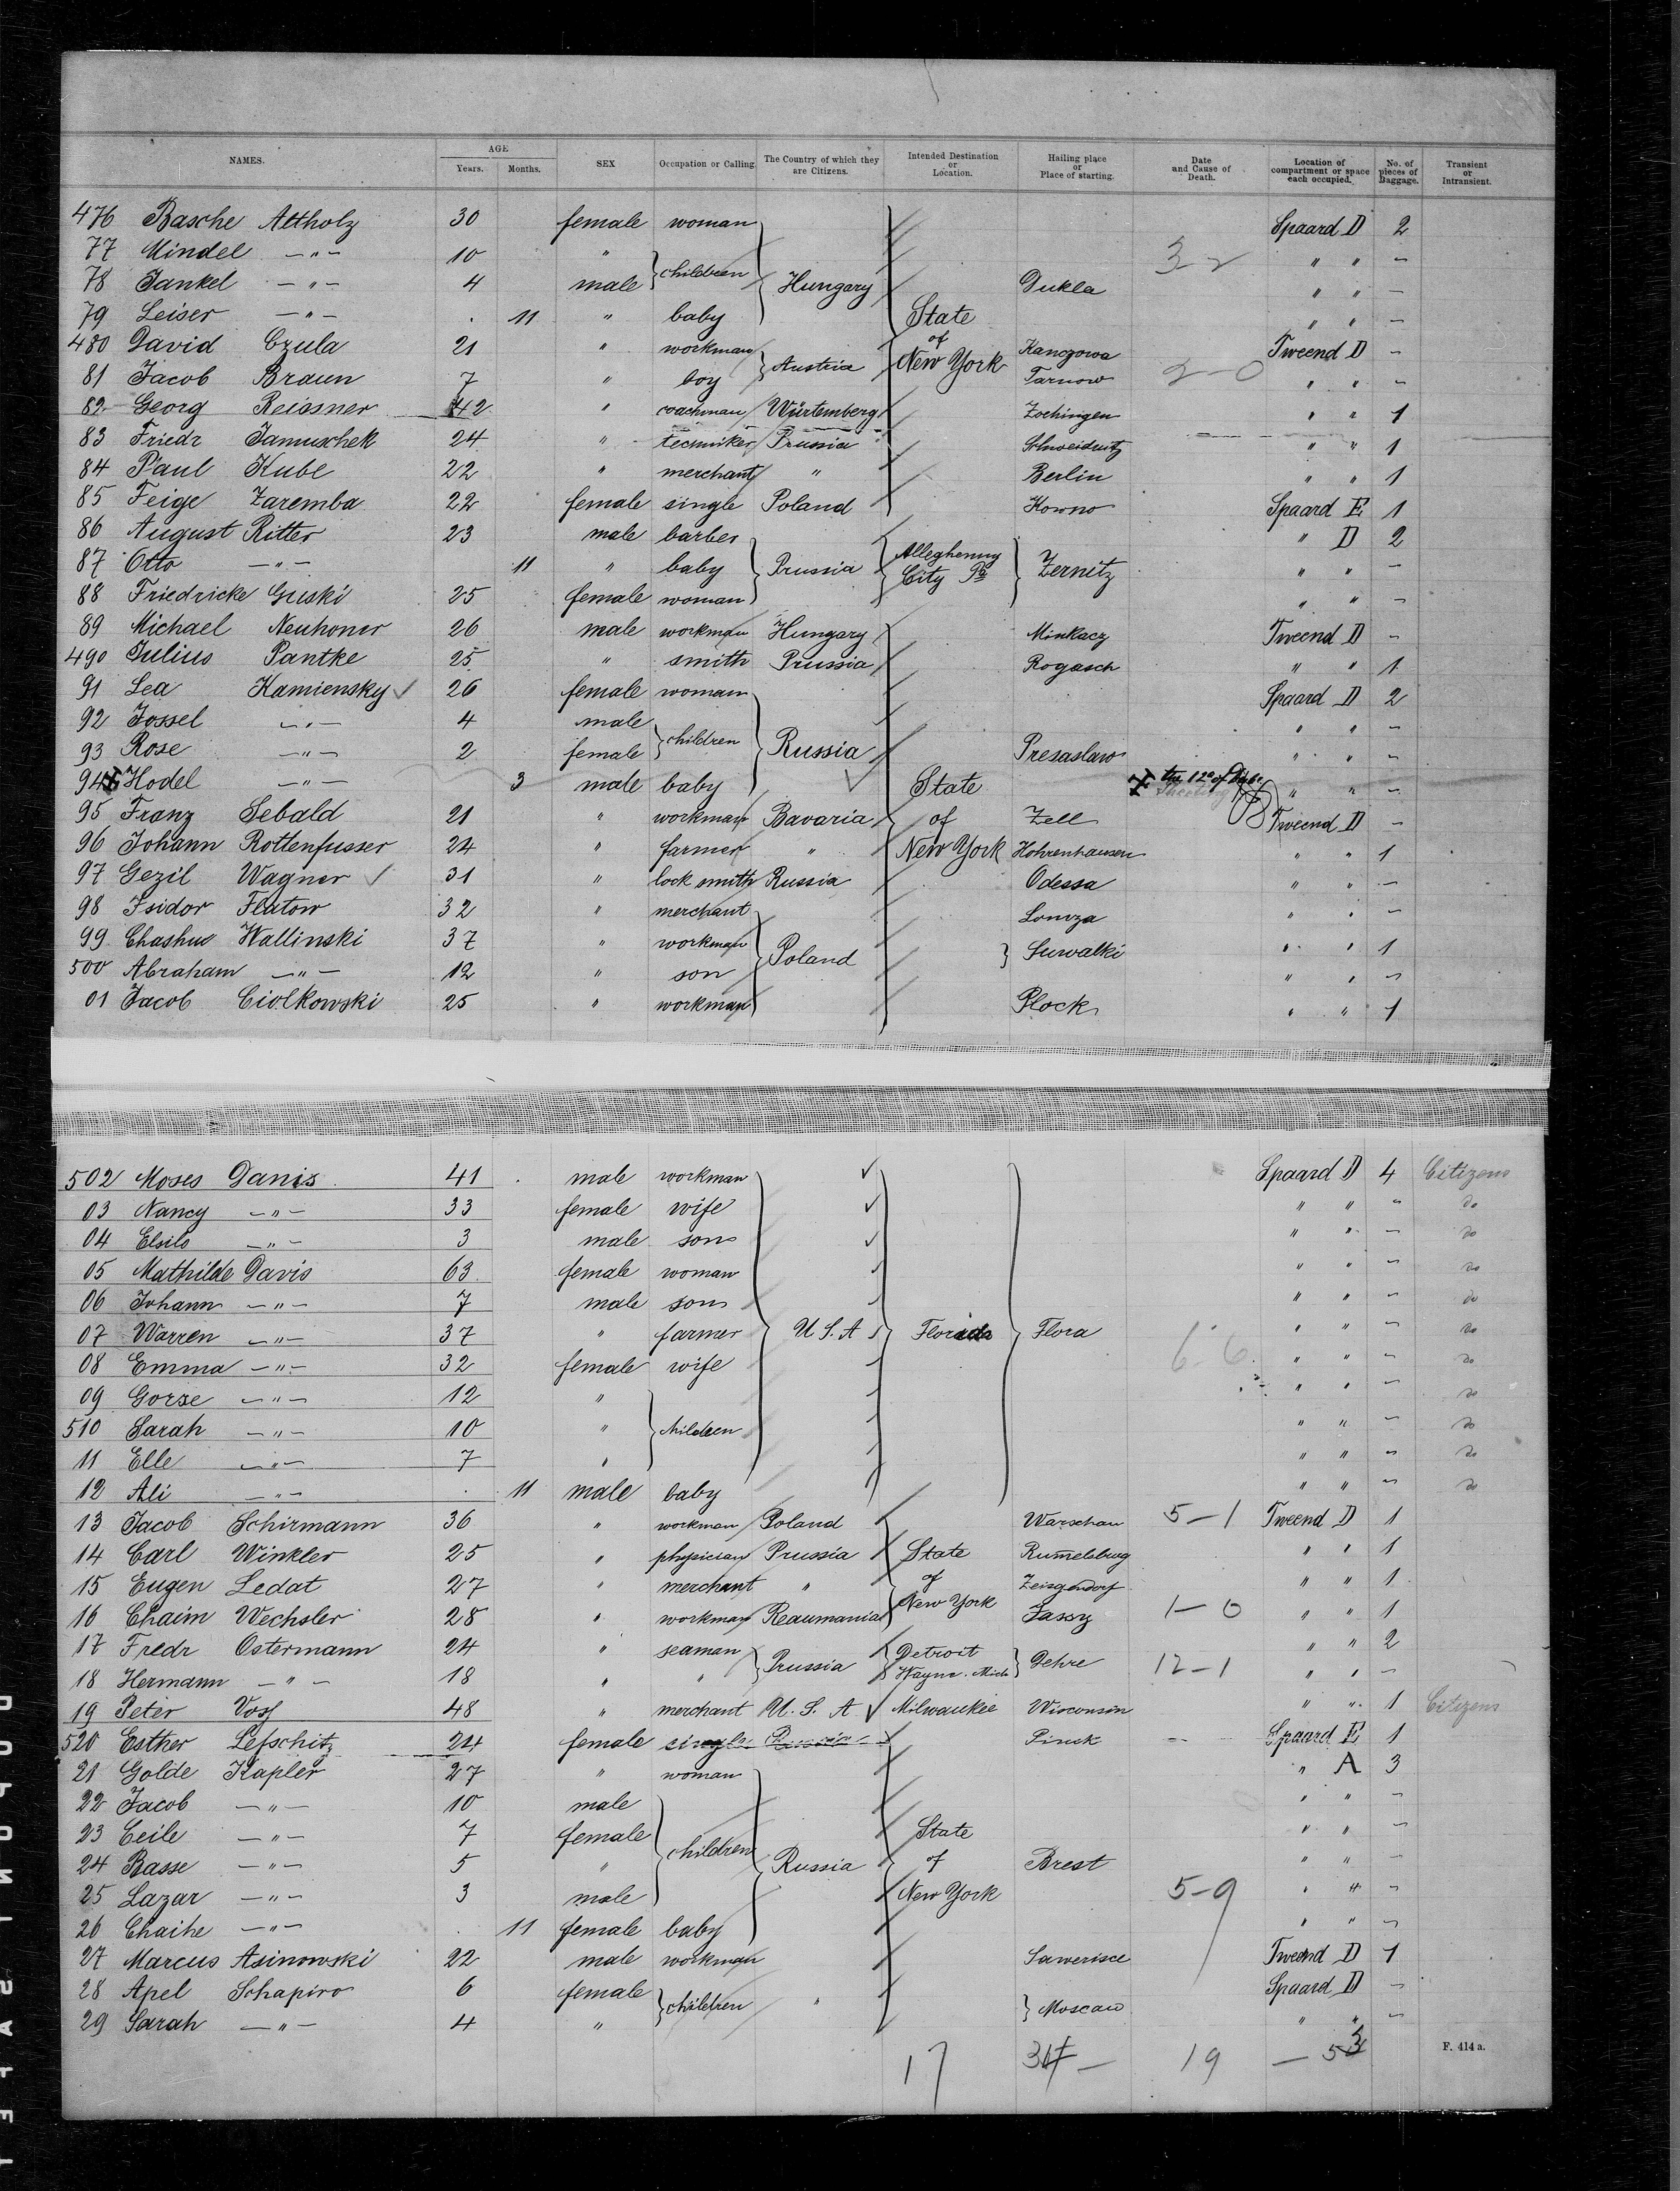 NAMES. AGE Years. Months. SEX Occupation or Calling. The Country of which they are Citizens. Intended Destination or Location. Hailing place or Place of starting. Date and Cause of Death. Location of compartment or space each occupied. No. of pieces of Baggage. Transient or Intransient.
476 Basche Altholz 30 female woman Spaard D 2
77 Mindel —〃— 10 〃 children 〃 〃 –
78 Jankel —〃— 4 male Hungary Dukla 〃 〃 –
79 Leiser —〃— 11 〃 baby State 〃 〃 –
480 David Czula 21 〃 workman Austria of Kanczowa Tweend D –
81 Jacob Braun 7 〃 boy New York Tarnow 2–0 〃 〃 –
82 Georg Reissner 42 〃 coachman Würtemberg Zochingen 〃 〃 1
83 Friedr Januschek 24 〃 Prussia 〃 〃 1
84 Paul Kube 22 〃 merchant 〃 Berlin 〃 〃 1
85 Feige Zaremba 22 female single Poland Kowno Spaard E 1
86 August Ritter 23 male barber 〃 D 2
87 Otto —〃— 11 〃 baby Prussia Alleghenny City Pa Zernitz 〃 〃 –
88 Friedricke Guski 25 female woman 〃 〃 –
89 Michael Neuhoner 26 male workman Hungary Minkacz Tweend D –
490 Julius Pantke 25 〃 smith Prussia Rogasch 〃 〃 1
91 Lea Kamiensky 26 female woman Spaard D 2
92 Jossel —〃— 4 male children 〃 〃 –
93 Rose —〃— 2 female Russia Presaslaw 〃 〃 –
94 Hodel —〃— 3 male baby State 〃 〃 –
95 Franz Sebald 21 〃 workman Bavaria of Zell Tweend D –
96 Johann Rottenfusser 24 〃 farmer 〃 New York Hohrenhausen 〃 〃 1
97 Gezil Wagner 31 〃 lock smith Russia Odessa 〃 〃 –
98 Isidor Flatow 32 〃 merchant Lomza 〃 〃 –
99 Chashu Wallinski 37 〃 workman Poland Suwalki 〃 〃 1
500 Abraham —〃— 12 〃 son 〃 〃 –
01 Jacob Ciolkowski 25 〃 workman Plock 〃 〃 1
502 Moses Danis 41 male workman Spaard D 4 Citizens
03 Nancy —〃— 33 female wife 〃 〃 – do
04 Elsilo —〃— 3 male son 〃 〃 – do
05 Mathilde Davis 63 female woman 〃 〃 – do
06 Johann —〃— 7 male son 〃 〃 – do
07 Warren —〃— 37 〃 farmer U S. A Florida Flora 〃 〃 – do
08 Emma —〃— 32 female wife 6–6 〃 〃 – do
09 Gorse —〃— 12 〃 〃 〃 – do
510 Sarah —〃— 10 〃 children 〃 〃 – do
11 Elle —〃— 7 〃 〃 〃 – do
12 Ali —〃— 11 male baby 〃 〃 – do
13 Jacob Schirmann 36 〃 workman Poland Warschau 5–1 Tweend D 1
14 Carl Winkler 25 〃 physician Prussia State Rummelsburg 〃 〃 1
15 Eugen Ledat 27 〃 merchant 〃 of Zeisgendorf 〃 〃 1
16 Chaim Wechsler 28 〃 workman Reaumania New York Jassy 1–0 〃 〃 1
17 Fredr Ostermann 24 〃 seaman Prussia Detroit Gehre 〃 〃 2
18 Hermann —〃— 18 〃 〃 Wayne. Mich 12–1 〃 〃 –
19 Peter Voss 48 〃 merchant U. S. A Milwaukie Wisconsin 〃 〃 1 Citizens
520 Esther Lefschitz 24 female single Russia Pinck Spaard E 1
21 Golde Kapler 27 〃 woman 〃 A 3
22 Jacob —〃— 10 male 〃 〃 –
23 Ceile —〃— 7 female children State 〃 〃 –
24 Basse —〃— 5 〃 Russia of Brest 〃 〃 –
25 Lazar —〃— 3 male New York 5–9 〃 〃 –
26 Chaihe —〃— 11 female baby 〃 〃 –
27 Marcus Asinowski 22 male workman Sawerisce Tweend D 1
28 Apel Schapiro 6 female children 〃 Moscau Spaard D –
29 Sarah —〃— 4 〃 〃 〃 –
17 19 — 53 F. 414 a.